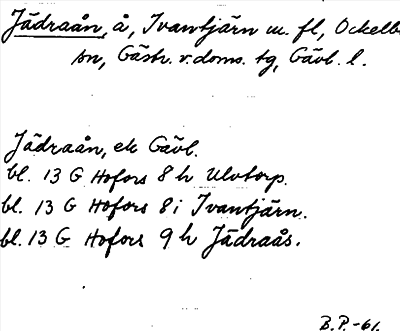 Jädraån, å, Ivantjärn m. fl, Ockelbo
sn, Gästr. v. doms. tg, Gävl. l.
Jädraån, ek Gävl.
bl. 13 G Hofors 8 h Ulvtorp.
bl. 13 G Hofors 8 i Ivantjärn.
bl. 13 G Hofors 9 h Jädraås.
B.P.-61.